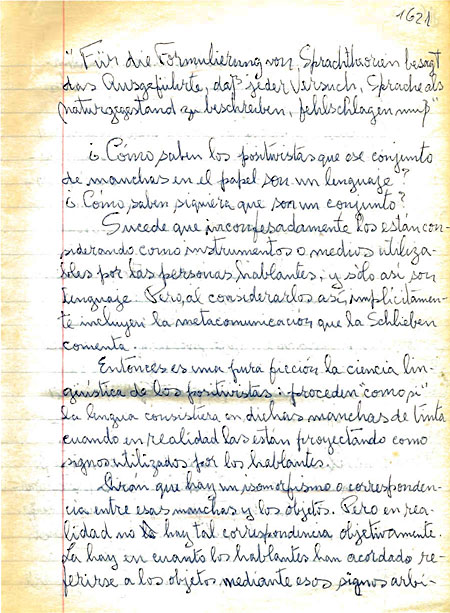 1621
"Für die Formulierung von Sprachtheorien besagt
das Ausgeführte, daß jeder Versuch, Sprache als
naturgegestand zu beschreiben, fehlschlagen muß"
¿Cómo saben los positivistas que ese conjunto
de manchas en el papel son un lenguaje?
¿Cómo saben siquiera que son un conjunto?
Sucede que inconfesadamente los están con-
siderando como instrumentos o medios utiliza-
bles por las personas hablantes; y sólo así son
lenguaje. Pero, al considerarlos así, implícitamen-
te incluyen la metacomunicación que la Schlieben
comenta.
Entonces es una pura ficción la ciencia lin-
güística de los positivistas: proceden "como si"
la lengua consistiera en dichas manchas de tinta
cuando en realidad las están proyectando como
signos utilizados por los hablantes.
Dirán que hay un isomorfismo o corresponden-
cia entre esas manchas y los objetos. Pero en rea-
lidad no hay tal correspondencia objetivamente.
La hay en cuanto los hablantes han acordado re-
ferirse a los objetos mediante esos signos arbi-